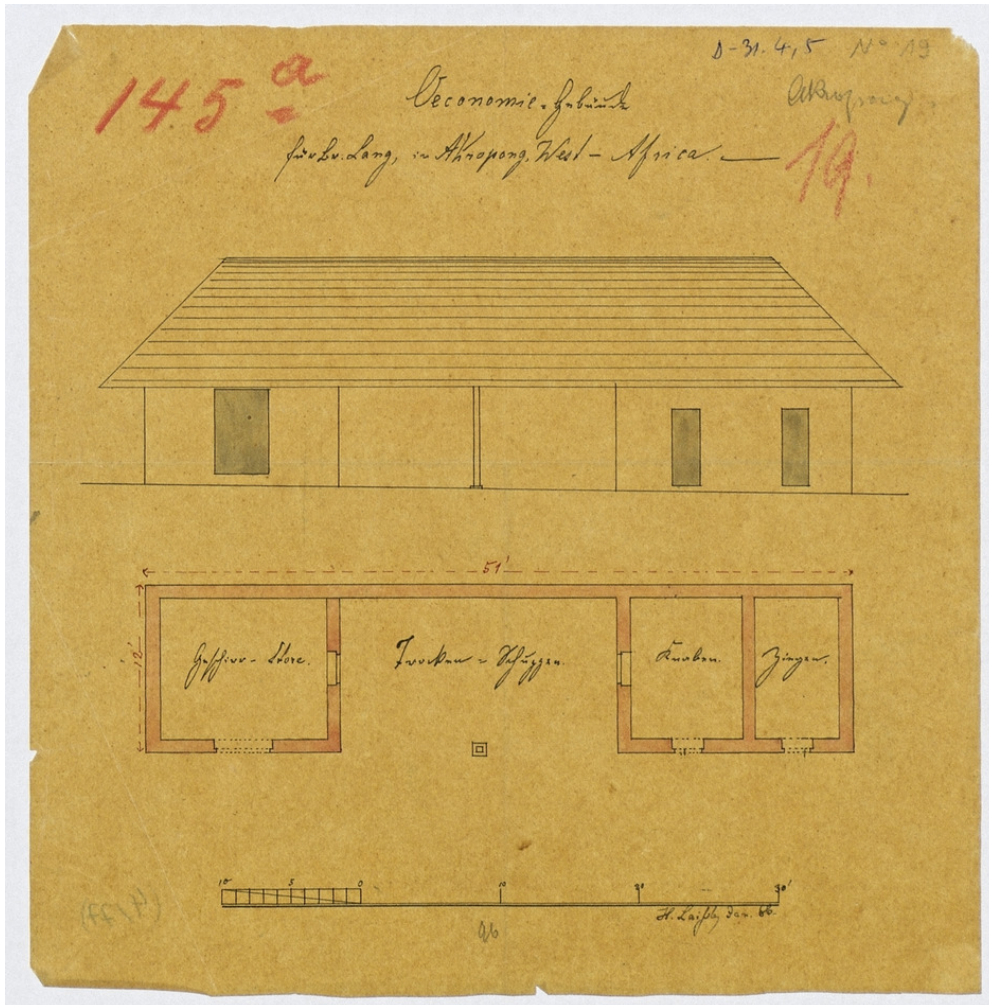 145 a
D-31.4,5 Nº 19
Akropong
19.
Oeconomie-Gebäude
für Br. Lang, in Akropong, West-Africa.
51'
12'
Geschirr-Store.
Trocken-Schuppen.
Knaben.
Ziegen.
10 5 0 10 20 30'
Jan.
96